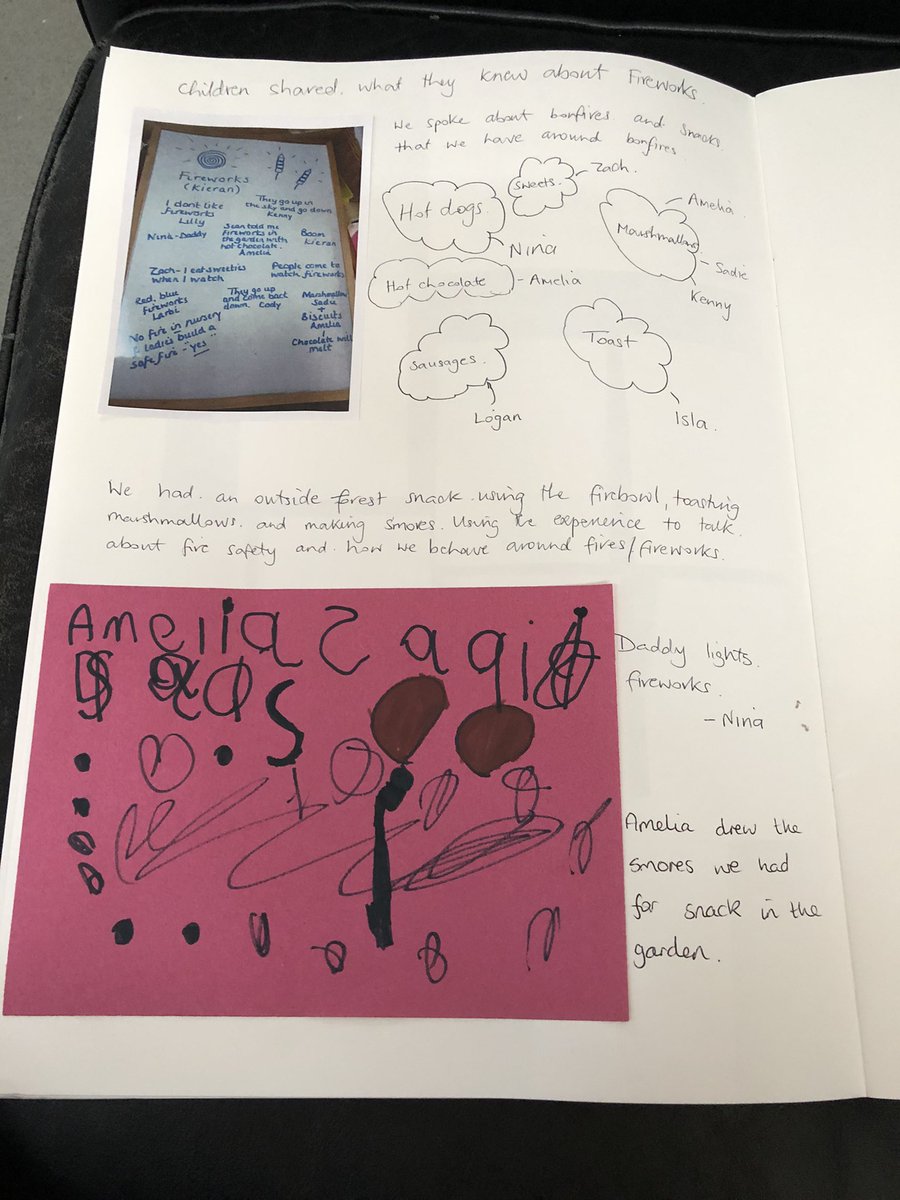 Children shared. what they knew about Fireworks.
We spoke about bonfires and snacks
that we have around bonfires.
Fireworks
(Kieran)
I dont like
fireworks
Lilly
They go up in
the sky and go down
Kenny
Nina-Daddy
Sean told me
fireworks in
the garden with
hot chocolate.
Amelia
Boom
Kieran
Zach-I eat sweeties
when I watch
People come to
watch fireworks
Red, blue
fireworks
Larbi
They go up
and come back
down Cody
Marshmallow
Sadie
+
Biscuits
Amelia
Chocolate will
melt
No fire in nursery
ladies build a
safe fire - "yes"
Hot dogs.
Nina
Sweets.
Zach.
Marshmallows
Amelia.
Sadie
Kenny
Hot chocolate - Amelia
Sausages.
Logan
Toast
Isla.
We had an outside forest snack using the firebowl, toasting
marshmallows. and making smores. Using the experience to talk
about fire safety and how we behave around fires/fireworks.
Amelia
Daddy lights.
fireworks.
- Nina
Amelia drew the
smores we had
for snack in the
garden.